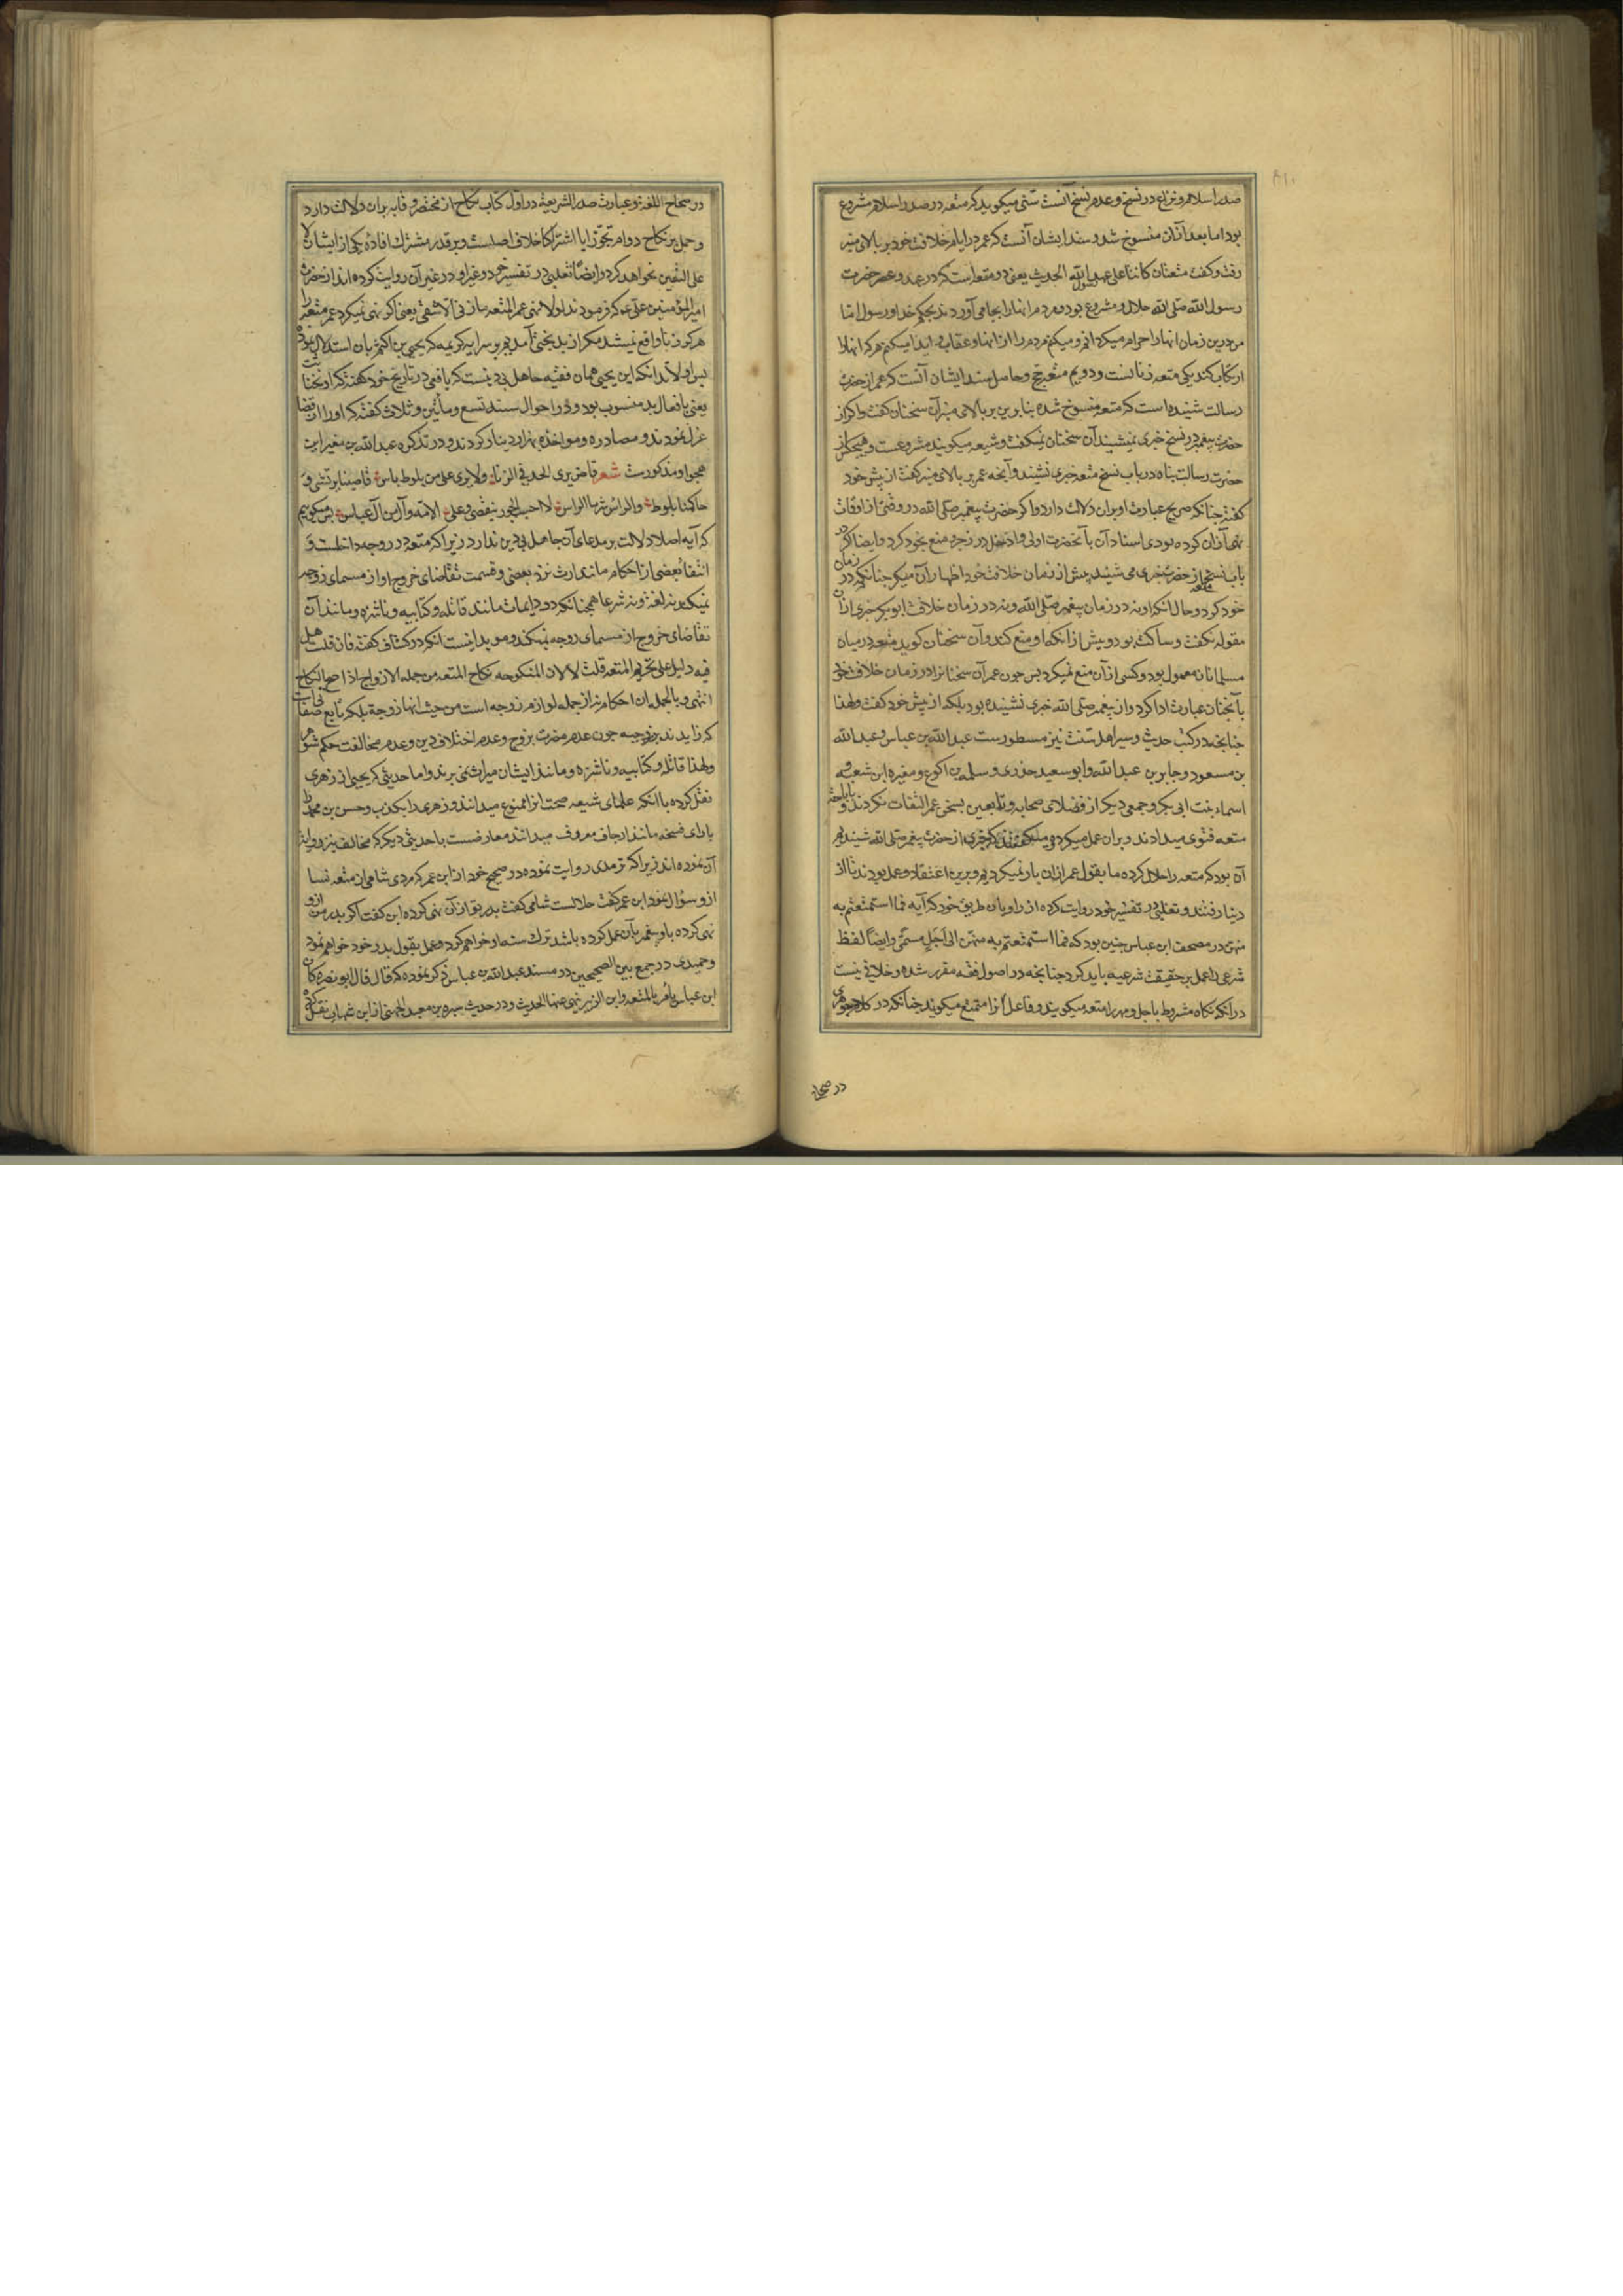 صدر اسلام و نزاع در نسخ و عدم نسخ آنست سنی میکوید که متعه در صدر اسلام مشروع
بود اما بعد ازان منسوخ شد و سند ایشان آنست که عمر در ایام خلافت خود بر بالای منبر
رفت و کفت متعتان کانتا علی عهد رسول الله الحدیث یعنی دو متعه است که در عهد و عصر حضرت
رسول الله صلی الله حلال و مشروع بود و مردم انها را بجا می آوردند بحکم خدا و رسول اما
من درین زمان انها را حرام میکردانم و میکنم مردم را از انها و عقاب و ایذا میکنم هر که انها را
ارتکاب کند یکی متعه زنانست و دویم متعه حج و حاصل سند ایشان آنست که عمر از حضرت
رسالت شنیده است که متعه منسوخ شده بنابرین بر بالای منبر آن سخنان کفت و اکر از
حضرت پیغمبر در نسخ خبری نمیشنید آن سخنان نمیکفت و شیعه میکویند مشروعست و هیچکس از
حضرت رسالت پناه در باب نسخ متعه خبری نشنید و آنچه عمر بر بالای منبر کفت از پیش خود
کفته چنانکه صریح عبارت او بران دلالت دارد و اکر حضرت پیغمبر صلی الله در وقتی از اوقات
نهی آزان کرده بودی اسناد آن بآنحضرت اولی و ادخل در زجر و منع بخود کرد و ایضا اکر در
باب نسخ متعه از حضرت خبری می شنید پیش از زمان خلافت خود اظهار آن میکرد چنانکه در زمان
خود کرد و حال انکه او نه در زمان پیغمبر صلی الله و نه در زمان خلافت ابو بکر خبری ازان
مقوله نکفت و ساکت بود و پیش از انکه او منع کند و آن سخنان کوید متعه در میان
مسلمانان معمول بود و کسی از آن منع نمیکرد پس چون عمر آن سخنانرا در زمان خلافت خود
بآنچنان عبارت ادا کرد و از پیغمبر صلی الله خبری نشنیده بود بلکه از پیش خود کفت و لهذا
چنانچه در کتب حدیث و سیر اهل سنت نیز مسطورست عبد الله بن عباس و عبد الله
بن مسعود و جابر بن عبد الله و ابو سعید خذری و سلمه بن اکوع و مغیره ابن شعبه و
اسماء بنت ابی بکر و جمعی دیکر از فضلای صحابه و تابعین بسخن عمر التفات نکردند و باباحت
متعه فتوی میدادند و بران عمل میکردند و میکفتند که خبری از حضرت پیغمبر صلی الله شنیدیم
آن بود که متعه را حلال کرده ما بقول عمر ازان باز نمیکردیم و برین اعتقاد و عمل بودند تا از
دینا رفتند و ثعلبی در تفسیر خود روایت کرده از راویان طریق خود که آیه فما استمتعتم به
منهن در مصحف ابن عباس چنین بود که فما استمتعتم به منهن الی اجل مسمی و ایضا لفظ
شرعی را عمل بر حقیقت شرعیه باید کرد چنانچه در اصول فقه مقرر شده و خلافی نیست
در انکه نکاح مشروط باجل و مهر را متعه میکویند و فاعل آنرا متمتع میکویند چنانکه در کلام جوهری
در صحاح
در صحاح اللغة و عبارت صدر الشریعة در اول کتاب نکاح از مختصر وقایه بران دلالت دارد
و حمل بر نکاح دوام تجوز ایا اشتراکا خلاف اصلست و بر قدر مشترک افادۀ یکی از ایشان لا
علی التعین نخواهد کرد و ایضا ثعلبی در تفسیر خود و غیر او در غیر آن روایت کرده اند از حضرت
امیر المؤمنین علی ع م که فرمودند لولا نهی عمر المتعه ما زنی الا شقی یعنی اکر نهی نمیکرد عمر متعه را
هرکز زنا واقع نمیشد مکر از بدبختی آمدیم بر سر آیه کریمه که یحیی بن اکثم بان استدلال نموده
پس اولا بدانکه این یحیی همان فقیه جاهل بی دینست که یافعی در تاریخ خود کفته که او بخنائت
یعنی بافعال بد منسوب بود و در احوال سنه تسع و مأتین و ثلاث کفته که او را از قضا
عزل نمودند و مصادره و مواخذه بهزار دینار کردند و در تذکره عبد الله بن مغیر این
هجو او مذکورست شعر قاض یری الحد فی الزناء ولا یری علی من یلوط باس قاضینا یرتشی و
حاکمنا یلوط والراس شر ما الراس لا احب الجور ینقضی وعلی الامة وآل من آل عباس پس میکوییم
که آیه اصلا دلالت بر مدعای آن جاهل بی دین ندارد زیرا که متعه در زوجه داخلست و
انتفا بعضی از احکام مانند ارث نزد بعضی و قسمت تقاضای خروج او از مسمای زوجه
نمیکند نه لغة و نه شرعا همچنانکه در دایمات مانند قاتله و کتابیه و ناشزه و مانند آن
تقاضای خروج از مسمای زوجه نمیکند و موید اینست آنکه در کشاف کفته فان قلت هل
فیه دلیل علی تحریم المتعه قلت لا لان المنکوحه نکاح المتعه من جمله الازواج اذا صح النکاح
انتهی و بالجمله ان احکام نه از جمله لوازم زوجه است من حیث انها زوجة بلکه تابع صفات
که زایدند بر زوجیه چون عدم مضرت بزوج و عدم اختلاف دین و عدم مخالفت حکم شوهر
و لهذا قاتله و کتابیه و ناشزه و مانند ایشان میراث نمی برند و اما حدیثی که یحیی از زهری
نقل کرده با انکه علمای شیعه صحت انرا ممنوع میدانند و زهری را بکذب و حسن بن محمد را
مانند ارجاف معروف میدانند معارضست با حدیثی دیکر که مخالف نیز روایت
آن نموده اند زیرا که ترمدی روایت نموده در صحیح خود از ابن عمر که مردی شامی از متعه نسا
ازو سؤال نمود ابن عمر کفت حلالست شامی کفت پدر تو ازان نهی کرده ابن کفت اکر پدر من ازو
نهی کرده باشد و پیغمبر بآن عمل کرده باشد ترک سنت او خواهم کرد و عمل بقول پدر خود خواهم نمود
و حمیدی در جمع بین الصحیحین در مسند عبد الله بن عباس ذکر نموده که قال قال ابو نصره کان
ابن عباس یأمر بالمتعه وابن الزبیر ینهی عنها الحدیث و در حدیث سبره بن معبد الجهنی از ابن شهاب نقل کرده